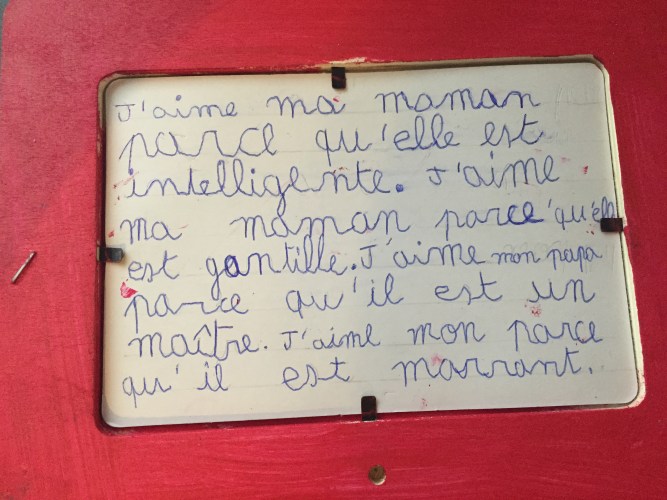 J'aime ma maman
parce qu'elle est
intelligente. J'aime
ma maman parce'qu'elle
est gantille. J'aime mon papa
parce qu'il est un
maître. J'aime mon parce
qu'il est marrant.